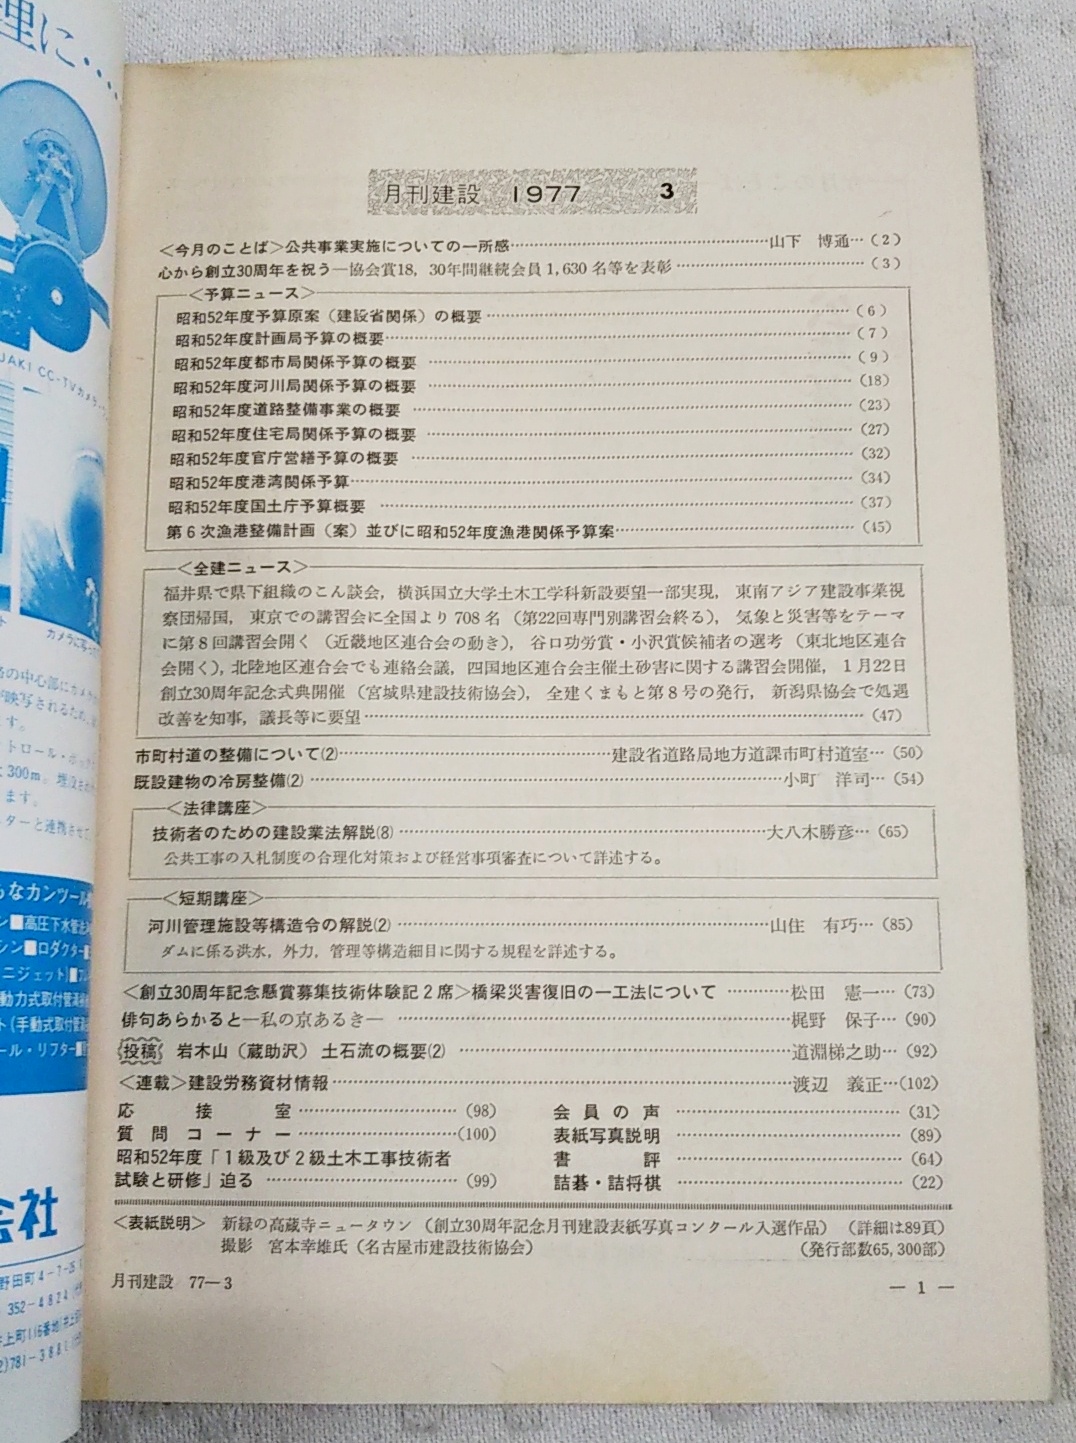 理に…
JAKI CC-TVカメラ
月刊建設 1977 3
＜今月のことば＞公共事業実施についての一所感………山下 博通…（2）
心から創立30周年を祝う―協会賞18，30年間継続会員1,630名等を表彰………（3）
＜予算ニュース＞
昭和52年度予算原案（建設省関係）の概要………（6）
昭和52年度計画局予算の概要………（7）
昭和52年度都市局関係予算の概要………（9）
昭和52年度河川局関係予算の概要………（18）
昭和52年度道路整備事業の概要………（23）
昭和52年度住宅局関係予算の概要………（27）
昭和52年度官庁営繕予算の概要………（32）
昭和52年度港湾関係予算………（34）
昭和52年度国土庁予算概要………（37）
第6次漁港整備計画（案）並びに昭和52年度漁港関係予算案………（45）
＜全建ニュース＞
福井県で県下組織のこん談会，横浜国立大学土木工学科新設要望一部実現，東南アジア建設事業視
察団帰国，東京での講習会に全国より708名（第22回専門別講習会終る），気象と災害等をテーマ
に第8回講習会開く（近畿地区連合会の動き），谷口功労賞・小沢賞候補者の選考（東北地区連合
会開く），北陸地区連合会でも連絡会議，四国地区連合会主催土砂害に関する講習会開催，1月22日
創立30周年記念式典開催（宮城県建設技術協会），全建くまもと第8号の発行，新潟県協会で処遇
改善を知事，議長等に要望………（47）
市町村道の整備について(2)………建設省道路局地方道課市町村道室…（50）
既設建物の冷房整備(2)………小町 洋司…（54）
＜法律講座＞
技術者のための建設業法解説(8)………大八木勝彦…（65）
公共工事の入札制度の合理化対策および経営事項審査について詳述する。
＜短期講座＞
河川管理施設等構造令の解説(2)………山住 有巧…（85）
ダムに係る洪水，外力，管理等構造細目に関する規程を詳述する。
＜創立30周年記念懸賞募集技術体験記2席＞橋梁災害復旧の一工法について………松田 憲一…（73）
俳句あらかると―私の京あるき―………梶野 保子…（90）
投稿 岩木山（蔵助沢）土石流の概要(2)………道淵梯之助…（92）
＜連載＞建設労務資材情報………渡辺 義正…（102）
応接室………（98）
質問コーナー………（100）
昭和52年度「1級及び2級土木工事技術者
試験と研修」迫る………（99）
会員の声………（31）
表紙写真説明………（89）
書評………（64）
詰碁・詰将棋………（22）
＜表紙説明＞ 新緑の高蔵寺ニュータウン（創立30周年記念月刊建設表紙写真コンクール入選作品）（詳細は89頁）
撮影 宮本幸雄氏（名古屋市建設技術協会） （発行部数65,300部）
月刊建設 77―3
― 1 ―